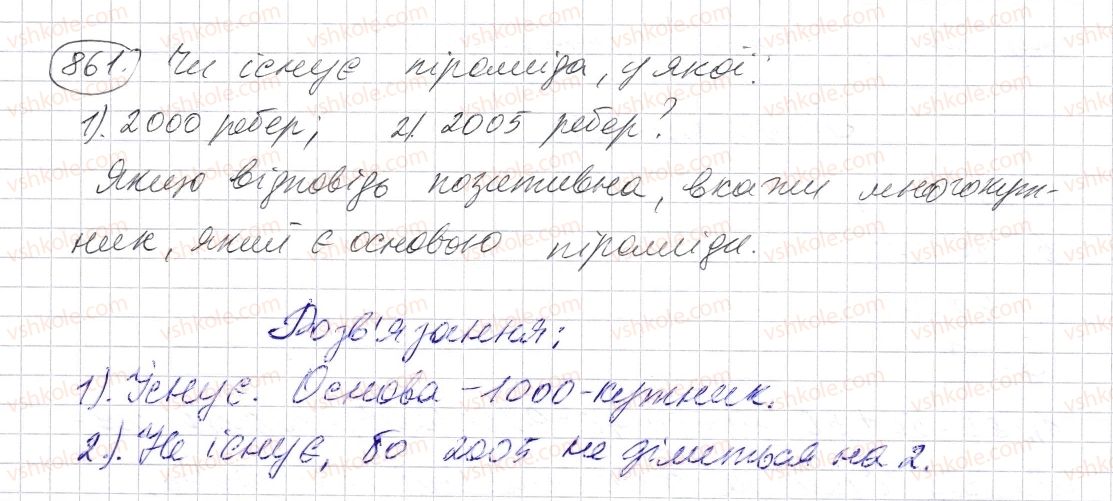 861. Чи існує піраміда, у якої:
1). 2000 ребер; 2). 2005 ребер?
Якщо відповідь позитивна, вкажи многокут-
ник, який є основою піраміди.
Розв'язання:
1). Існує. Основа - 1000-кутник.
2.). Не існує, бо 2005 не ділиться на 2.